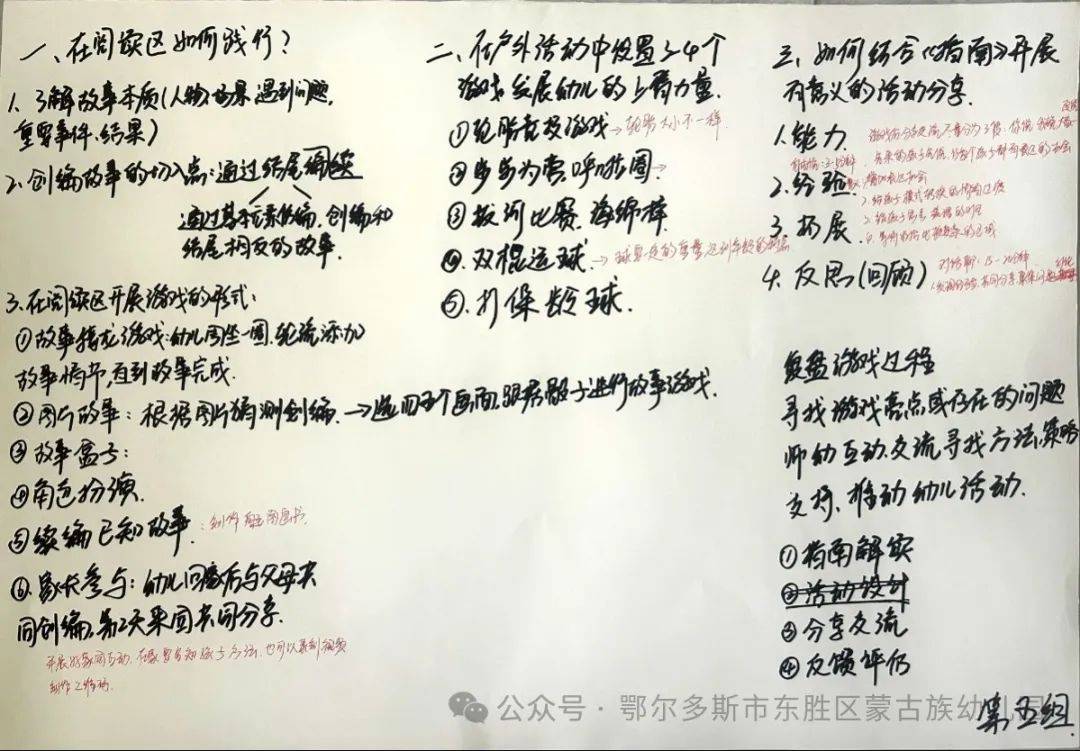 一、在阅读区如何践行？
1. 了解故事本质(人物、场景、遇到问题、
重要事件、结果)
2. 创编故事的切入点:通过结尾编续
通过基本元素仿编、创编和
结尾相反的故事.
3. 在阅读区开展游戏的形式:
①故事接龙游戏:幼儿围坐一圈.轮流添加
故事情节,直到故事完成.
②图片故事:根据图片猜测创编.→选四五个画面,跟着骰子进行故事游戏.
③故事盒子:
④角色扮演.
⑤续编已知故事.:制作 图画书.
⑥.家长参与:幼儿回家后与父母共
同创编,第2天来园共同分享.
开展好家园互动.
制作
二、在户外活动中设置3-4个
游戏发展幼儿的上臂力量.
①轮胎竞技游戏→轮胎大小不一样.
②步步为营 呼啦圈?
③拔河比赛.海绵棒
④.双棍运球.→球要一定的重量达到
⑤.打保龄球.
三、如何结合《指南》开展
有意义的活动分享.
1.能力
2.经验
3.拓展
4.反思(回顾)
复盘游戏过程
寻找游戏亮点或存在的问题
师幼互动.交流寻找方法,策略
支持、推动幼儿活动.
①指南解实
②活动设计
③分享交流
④反馈评价
第五组
公众号·鄂尔多斯市东胜区蒙古族幼儿园